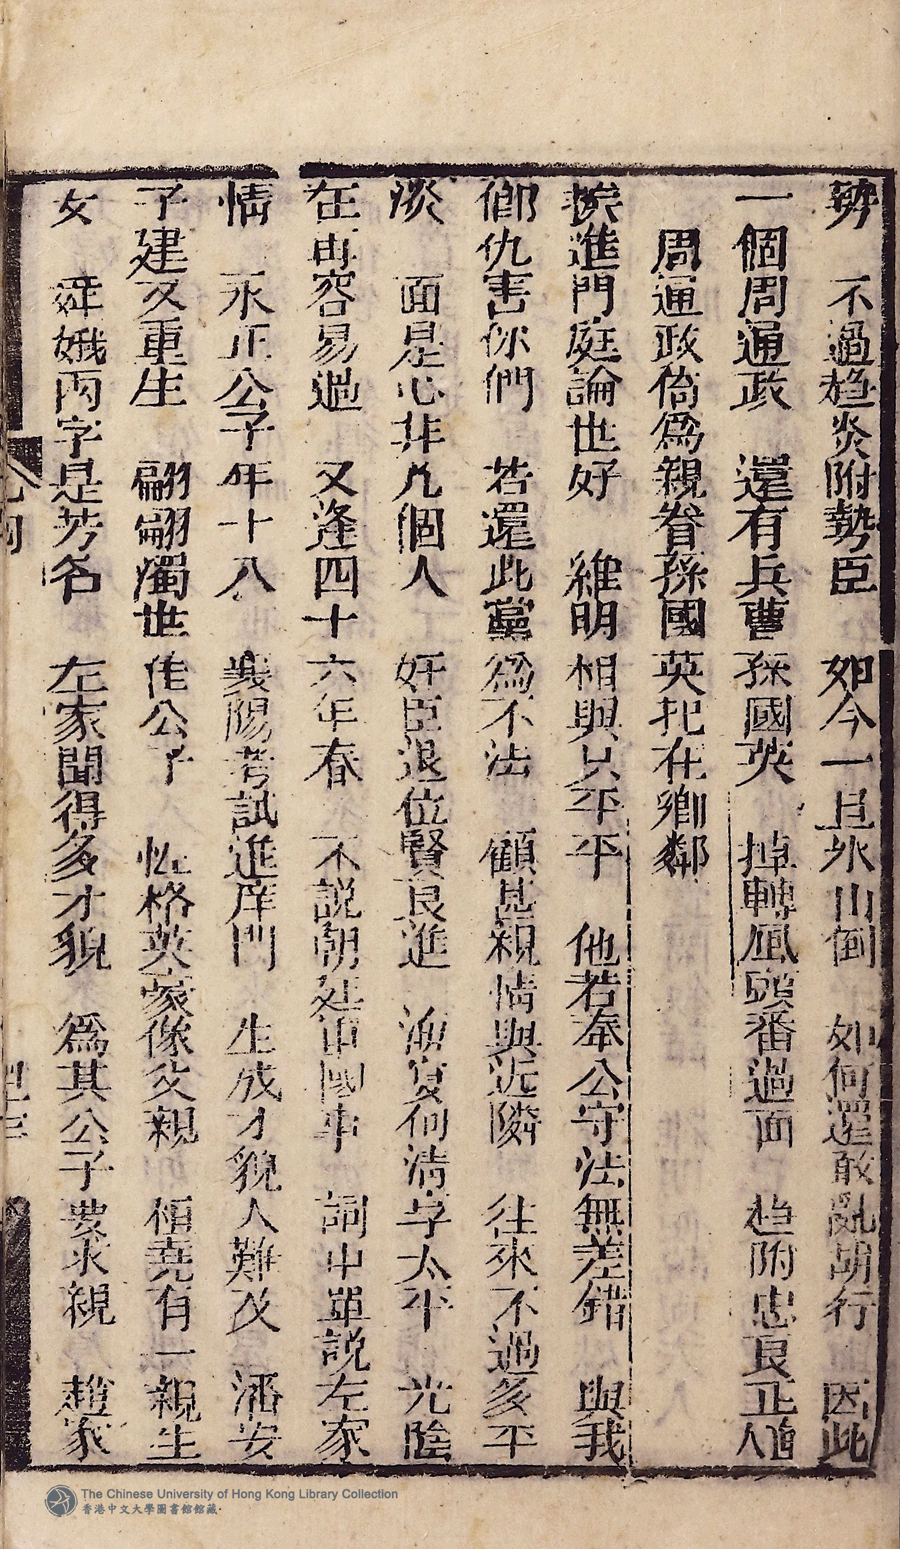 勢　不過趋炎附勢臣　如今一旦氷山倒　如何還敢亂胡行　因此
一個周通政　還有兵曹孫國英　掉轉風頭番過面　趋附忠良正人
周通政倚為親眷孫國英把在鄉鄰
挨進門庭論世好　維明相與只平平　他若奉公守法無差錯　與我
卿仇害你們　若還此黨為不法　顧甚親情與近隣　徃來不過多平
淡　面是心非凢個人　奸臣退位賢良進　海宴何清享太平　光陰
在再容易過　又逢四十六年春　不説朝廷中國事　詞中單説左家
情　永正公子年十八　襄陽考試進庠門　生成才貌人難及　潘安
子建又重生　翩翩濁世佳公子　性格英豪像父親　桓堯有一親生
女　婙娥両字是芳名　左家聞得多才貌　為其公子要求親　趙家
The Chinese University of Hong Kong Library Collection
香港中文大學圖書館館藏